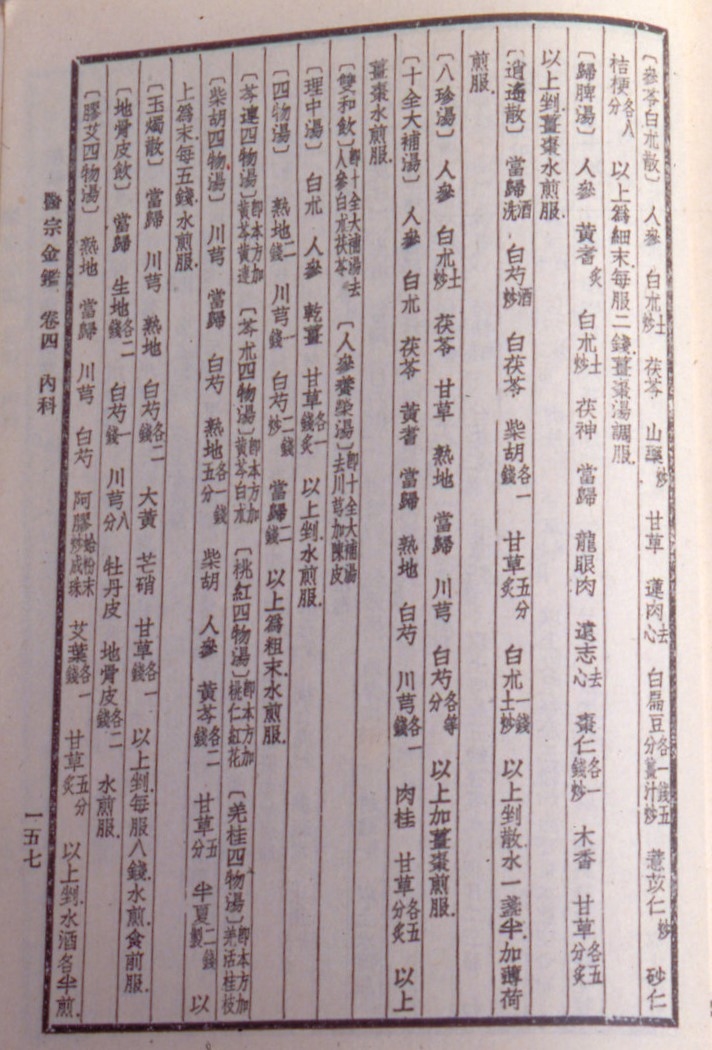 〔參苓白朮散〕 人參 白朮土炒 茯苓 山藥炒 甘草 蓮肉去心 白扁豆各一錢五分薑汁炒 薏苡仁炒 砂仁
桔梗各八分 以上爲細末.每服二錢.薑棗湯調服.
〔歸脾湯〕 人參 黃耆炙 白朮土炒 茯神 當歸 龍眼肉 遠志去心 棗仁各一錢炒 木香 甘草各五分炙
以上剉.薑棗水煎服.
〔逍遙散〕 當歸酒洗 白芍酒炒 白茯苓 柴胡各一錢 甘草五分炙 白朮一錢土炒 以上剉散.水一盞半.加薄荷
煎服.
〔八珍湯〕 人參 白朮土炒 茯苓 甘草 熟地 當歸 川芎 白芍各等分 以上加薑棗煎服.
〔十全大補湯〕 人參 白朮 茯苓 黃耆 當歸 熟地 白芍 川芎各一錢 肉桂 甘草各五分炙 以上
薑棗水煎服.
〔雙和飲〕即十全大補湯去人參白朮茯苓 〔人參養榮湯〕即十全大補湯去川芎加陳皮
〔理中湯〕 白朮 人參 乾薑 甘草各一錢炙 以上剉.水煎服.
〔四物湯〕 熟地二錢 川芎一錢 白芍二錢炒 當歸二錢 以上爲粗末.水煎服.
〔芩連四物湯〕即本方加黃芩黃連 〔芩朮四物湯〕即本方加黃芩白朮 〔桃紅四物湯〕即本方加桃仁紅花 〔羌桂四物湯〕即本方加羌活桂枝
〔柴胡四物湯〕 川芎 當歸 白芍 熟地各一錢五分 柴胡 人參 黃芩各二錢 甘草五分 半夏二錢製 以
上爲末.每五錢.水煎服.
〔玉燭散〕 當歸 川芎 熟地 白芍各二錢 大黃 芒硝 甘草各一錢 以上剉.每服八錢.水煎.食前服.
〔地骨皮飲〕 當歸 生地各二錢 白芍一錢 川芎八分 牡丹皮 地骨皮各二錢 水煎服.
〔膠艾四物湯〕 熟地 當歸 川芎 白芍 阿膠蛤粉末炒成珠 艾葉各一錢 甘草五分炙 以上剉.水酒各半煎.
醫宗金鑑 卷四 內科
一五七